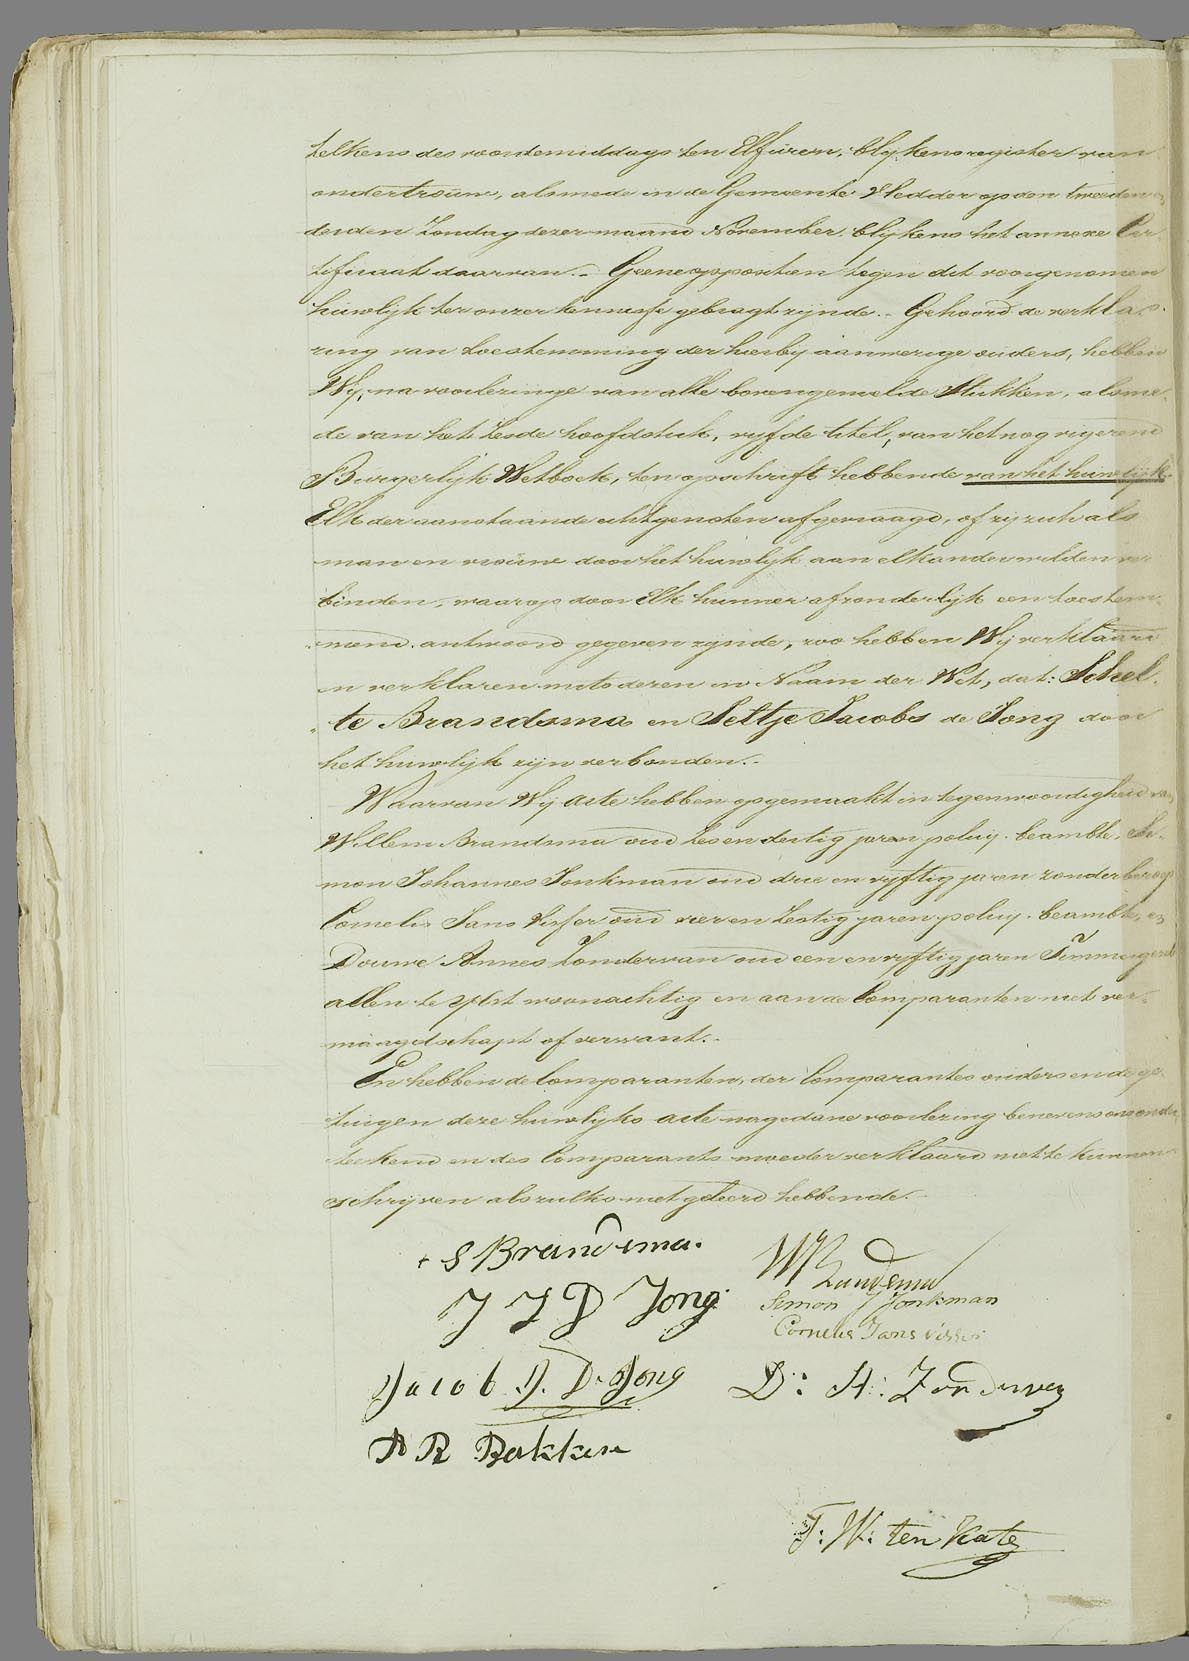 telkens des voordemiddags ten Elf üren, blijkens register van
ondertroüw, alsmede in de Gemeente Vledder op den tweeden en
derden Zondag dezer maand November, blijkens het annexe Cer-
tificaat daarvan.- Geene oppositien tegen dit voorgenomen
huwlijk ter onzer kennisse gebragt zijnde.- Gehoord de verkla-
ring van toestemming der hierbij aanwezige ouders, hebben
Wij, na voorlezinge van alle bovengemelde Stukken, alsme-
de van het Zesde hoofdstuk, vijfde titel, van het nog vigerend
Burgerlijk Wetboek, ten opschrift hebbende van het huwlijk
Elk der aanstaande echtgenoten afgevraagd, of zij zich als
man en vroüw door het huwlijk aan elkander wilden ver-
binden, waarop door Elk hunner afzonderlijk een toestem-
mend antwoord gegeven zijnde, zoo hebben Wij verklaard
en verklaren mits dezen in Naam der Wet, dat: Schel-
te Brandsma en Seltje Jacobs de Jong door
het huwlijk zijn verbonden.-
Waarvan Wij acte hebben opgemaakt in tegenwoordigheid van
Willem Brandsma oud Zes en dertig jaren policij beambte, Si-
mon Johannes Jonkman oud drie en vijftig jaren zonder beroep
Cornelis Jans Visser oud vier en Zestig jaren policij beambte, en
Douwe Annes Zondervan oud een en vijftig jaren Timmergezel
allen te Ylst woonachtig en aan de Comparanten niet ver-
maagdschapt of verwant.-
En hebben de Comparanten, der Comparantes ouders en de ge-
tuigen deze huwlijks acte na gedane voorlezing benevens ons onder-
teekend en des Comparants moeder verklaard niet te kunnen
schrijven als zulks niet geleerd hebbende.-
S Brandsma.
W Brandsma
J J D Jong
Simon J Jonkman
Cornelis Jans Visser
Jacob J. D. Jong
D: A: Zondervan
A R Bakker
T: W: ten Kate